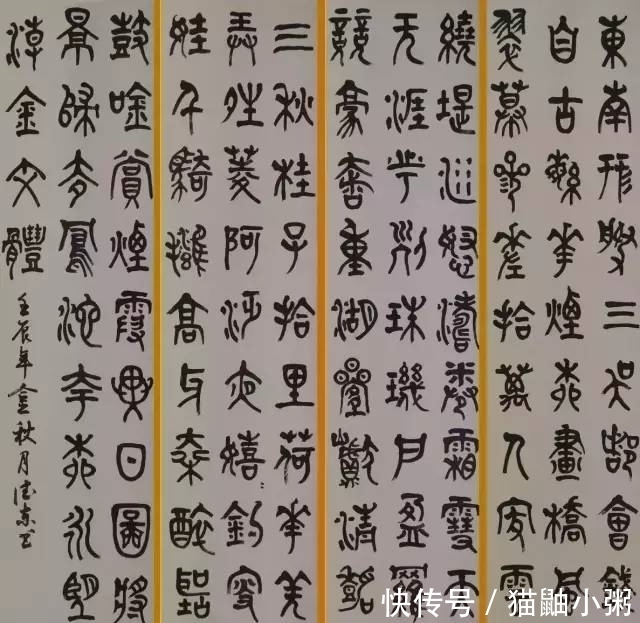 東南形勝三吳都會錢
自古繁華煙柳畫橋風
翠幕參差拾萬人家雲
繞堤沙怒濤卷霜雪天
无涯市列珠璣戶盈羅
競豪奢重湖疊巘清嘉
三秋桂子拾里荷花羌
弄晴菱歌泛夜嬉釣叟
娃千騎擁高牙乘醉聽
鼓吟賞煙霞異日圖將
景歸去鳳池夸柳永望
潮金文體
壬辰年金秋月
快传号/猫鼬小粥